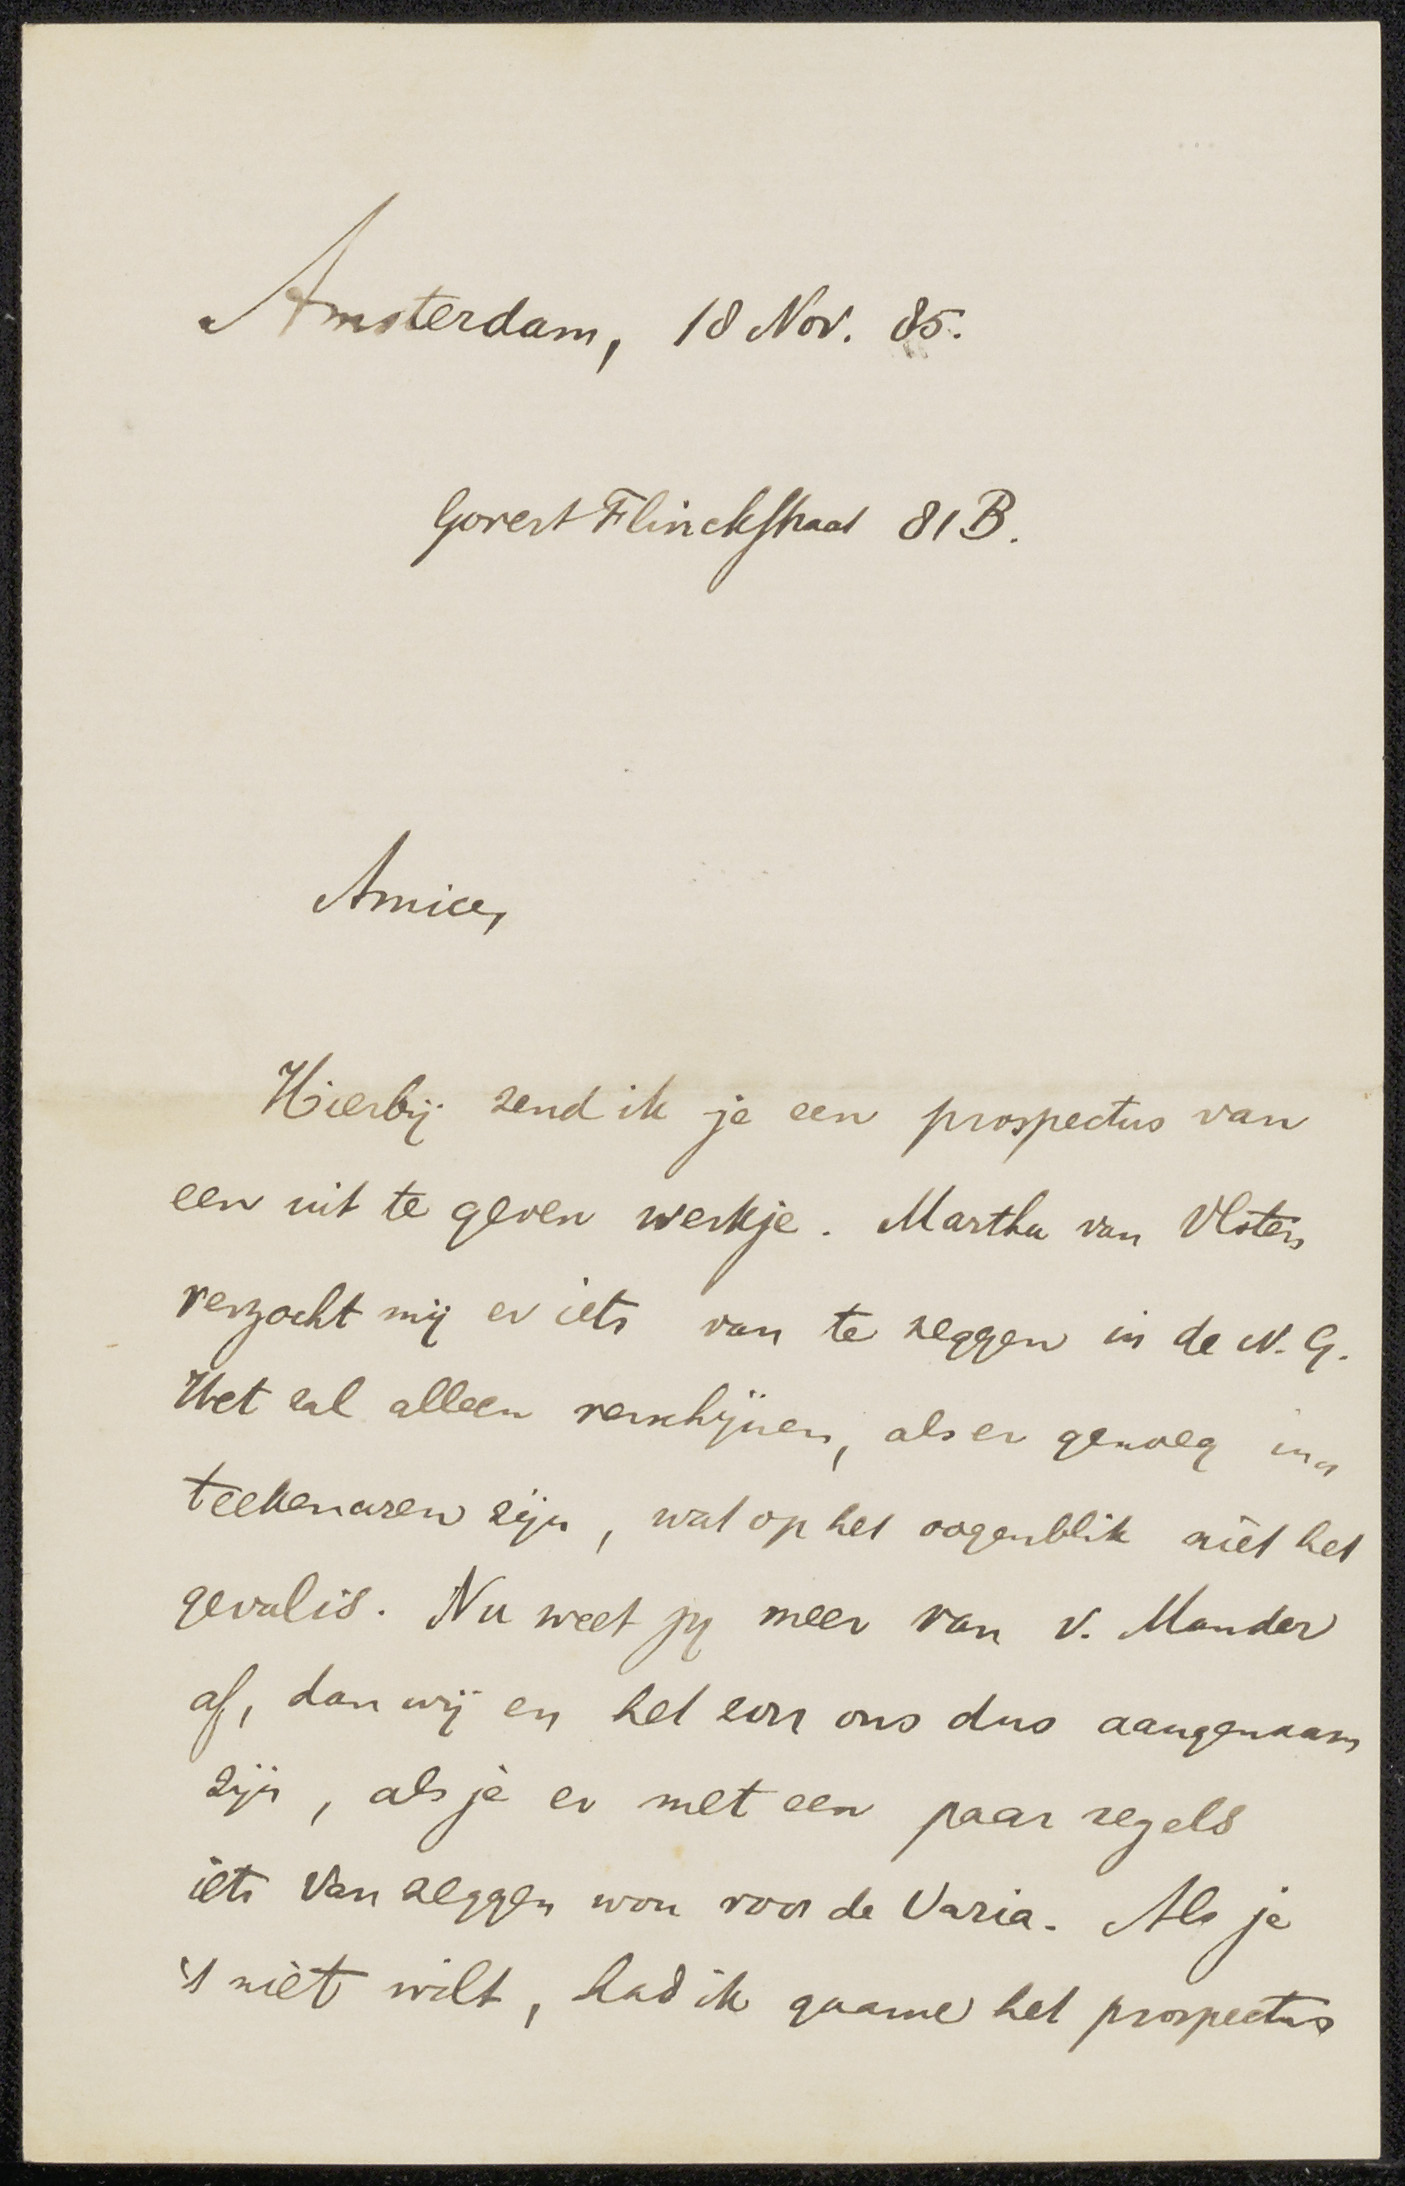 Amsterdam, 18 Nov. 85.
Govert Flinckstraat 81B.
Amice,
Hierbij zend ik je een prospectus van
een uit te geven werkje. Martha van Vloten
verzocht mij er iets van te zeggen in de N. G.
Het zal alleen verschijnen, als er genoeg in„
teekenaren zijn, wat op het oogenblik niet het
geval is. Nu weet jij meer van v. Mander
af, dan wij en het zou ons dus aangenaam
zijn, als je er met een paar regels
iets van zeggen wou voor de Varia. Als je
't niet wilt, had ik gaarne het prospectus